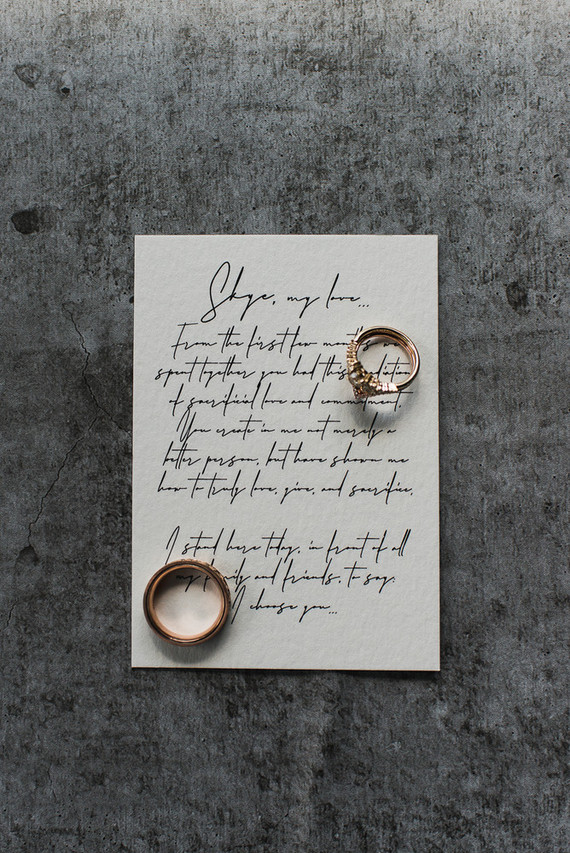 Skye, my love...
From the first few months we
spent together you had this
of sacrificial love and commitment.
You create in me not merely a
better person, but have shown me
how to truly love, give, and sacrifice.
I stand here today, in front of all
my family and friends, to say:
I choose you...